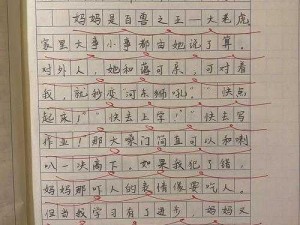 妈妈是百兽之王—大老虎，
家里大事小事都由她说了算。
对外人，她和蔼可亲，可对着
我，就秒变河东狮吼，“快点
起床！”“快去上学！”“快去写
作业！”那大嗓门简直可以和喇
叭一决高下。如果我犯了错，
妈妈那吓人的表情像要吃人。
但当我学习有了进步，妈妈又